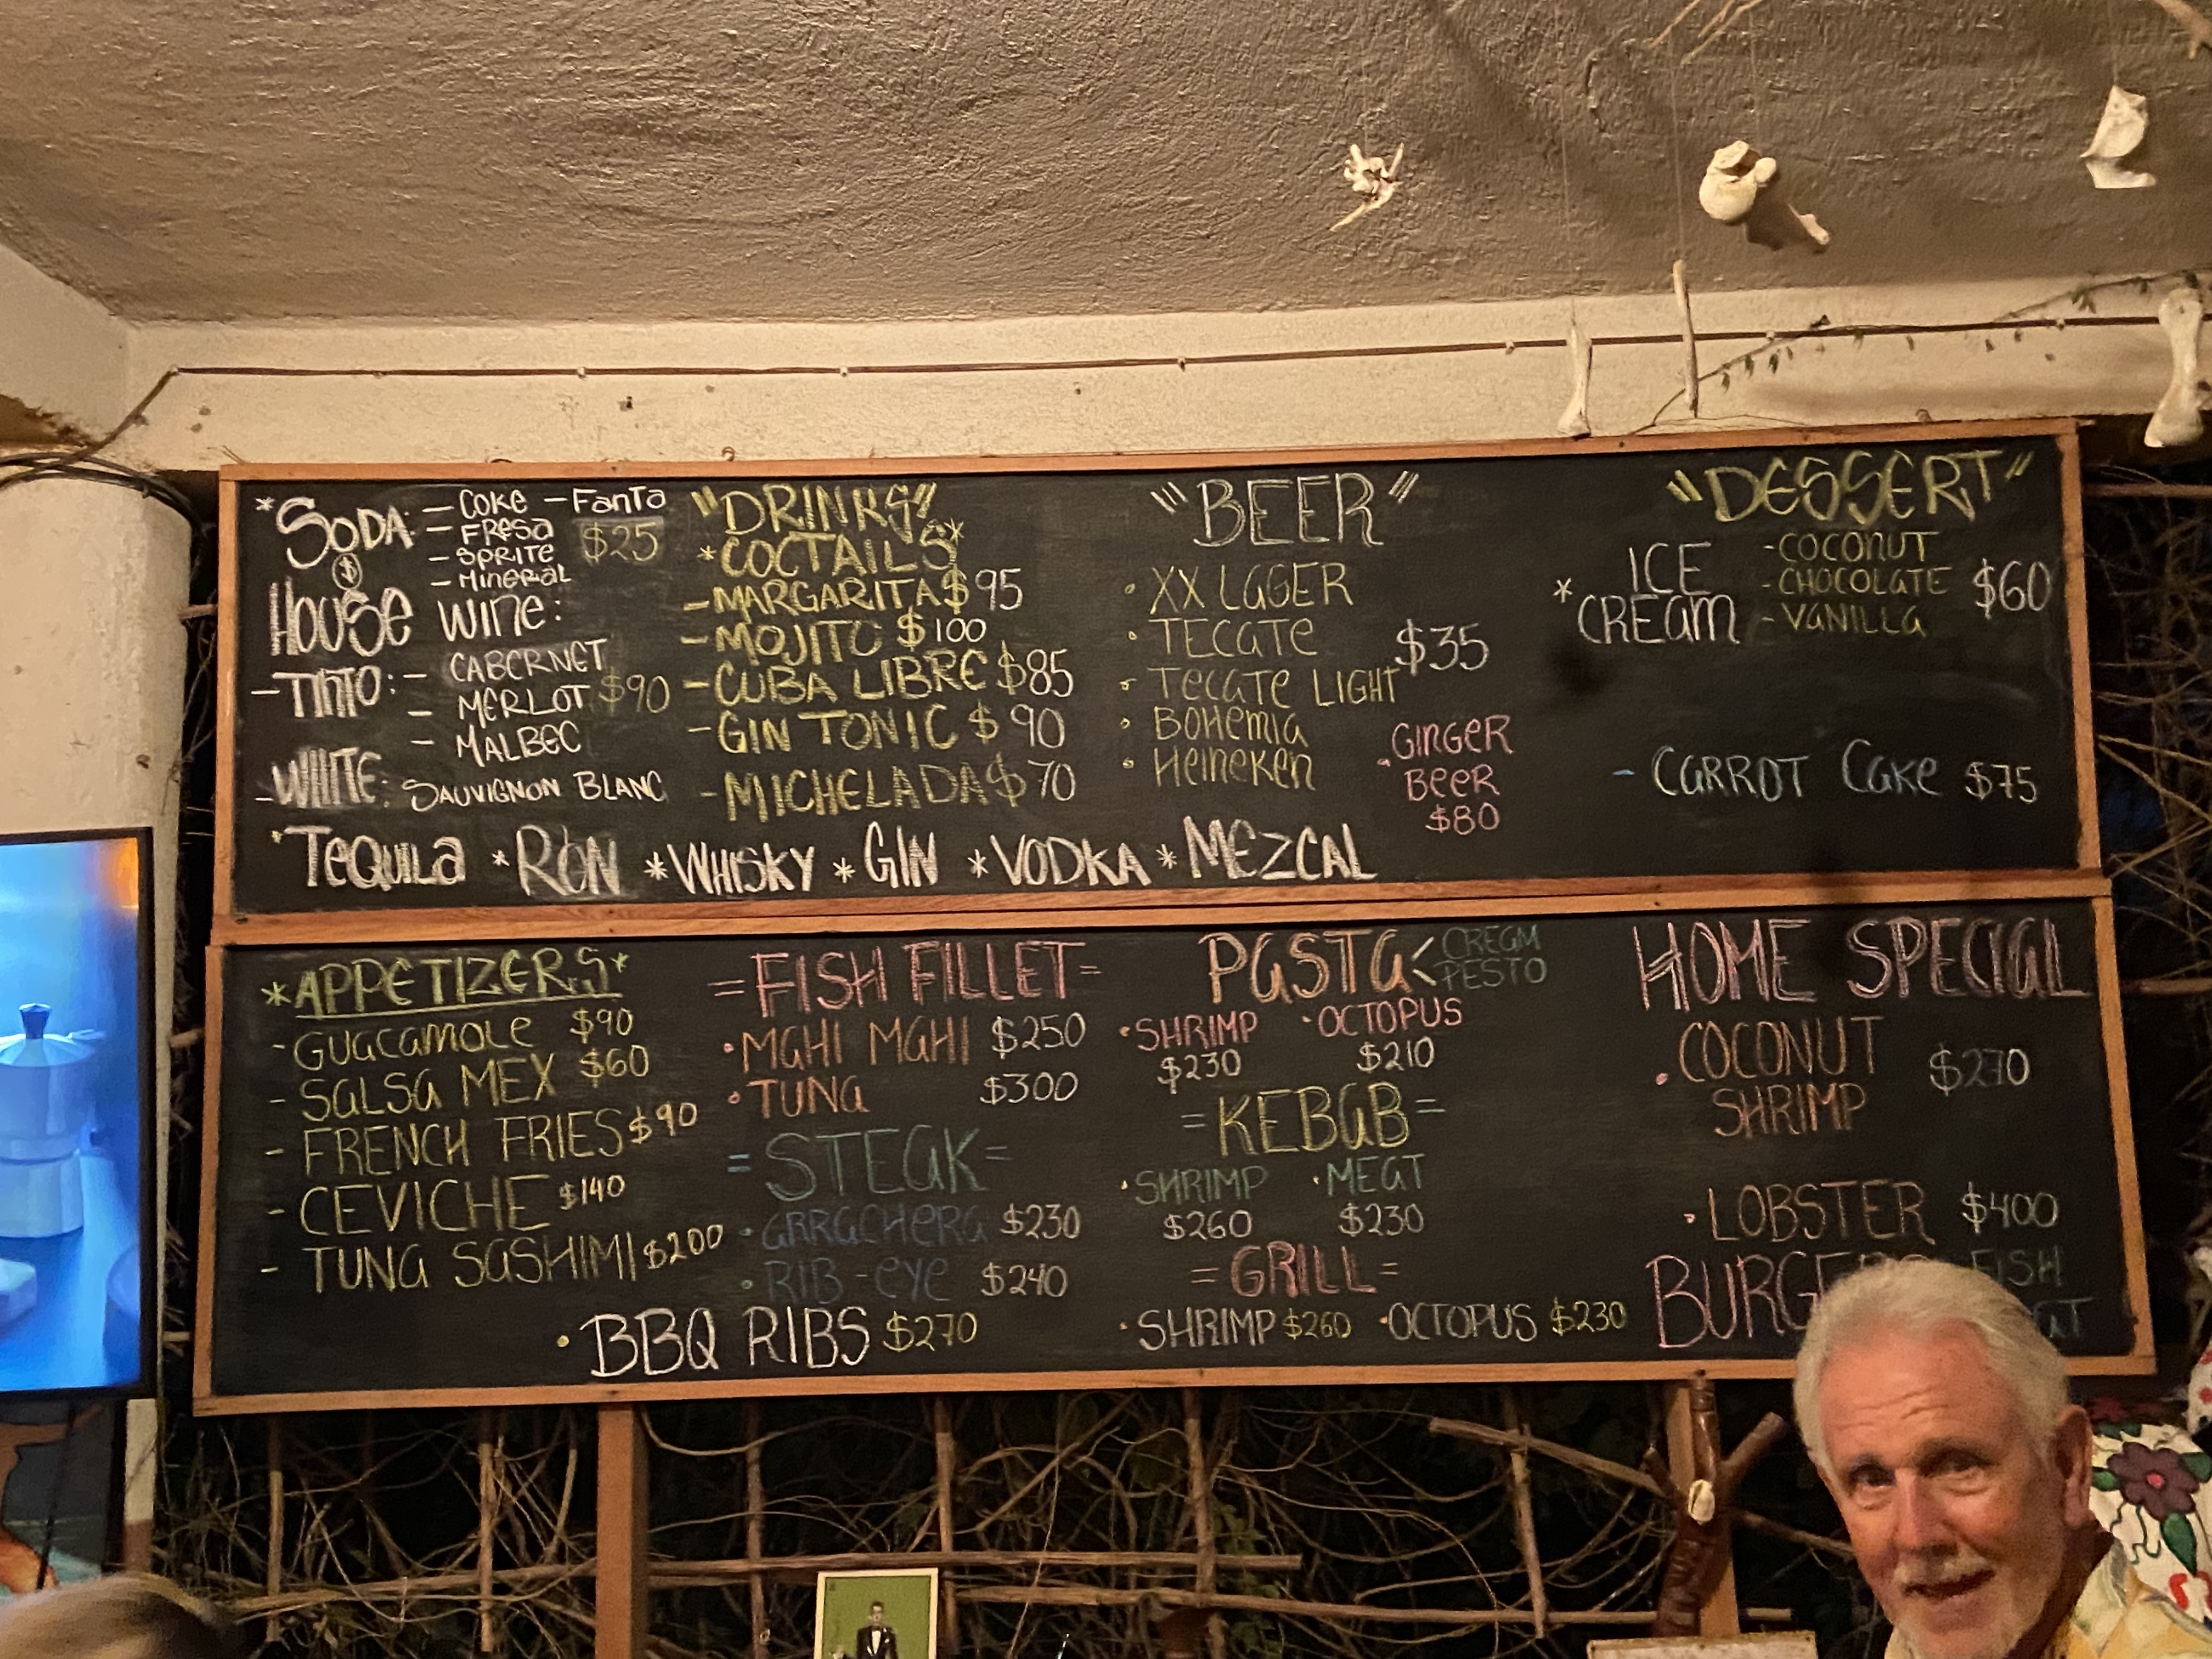 *SODA: - COKE - FANTA
- FRESA $25
- SPRITE
- MINERAL
$
HOUSE WINE:
- TINTO: - CABERNET
- MERLOT $90
- MALBEC
- WHITE: SAUVIGNON BLANC
"DRINKS"
*COCTAILS*
- MARGARITA $95
- MOJITO $100
- CUBA LIBRE $85
- GIN TONIC $90
- MICHELADA $70
"BEER"
• XX LAGER
• TECATE $35
• TECATE LIGHT
• BOHEMIA
• HEINEKEN
• GINGER
BEER
$80
"DESSERT"
* ICE CREAM
- COCONUT
- CHOCOLATE $60
- VANILLA
- CARROT CAKE $75
*TEQUILA *RON *WHISKY *GIN *VODKA *MEZCAL
*APPETIZERS*
- GUACAMOLE $90
- SALSA MEX $60
- FRENCH FRIES $90
- CEVICHE $140
- TUNA SASHIMI $200
=FISH FILLET=
• MAHI MAHI $250
• TUNA $300
=STEAK=
• ARRACHERA $230
• RIB-EYE $240
• BBQ RIBS $270
PASTA < CREAM
PESTO
• SHRIMP • OCTOPUS
$230 $210
=KEBAB=
• SHRIMP • MEAT
$260 $230
=GRILL=
• SHRIMP $260 • OCTOPUS $230
HOME SPECIAL
• COCONUT $270
SHRIMP
• LOBSTER $400
FISH